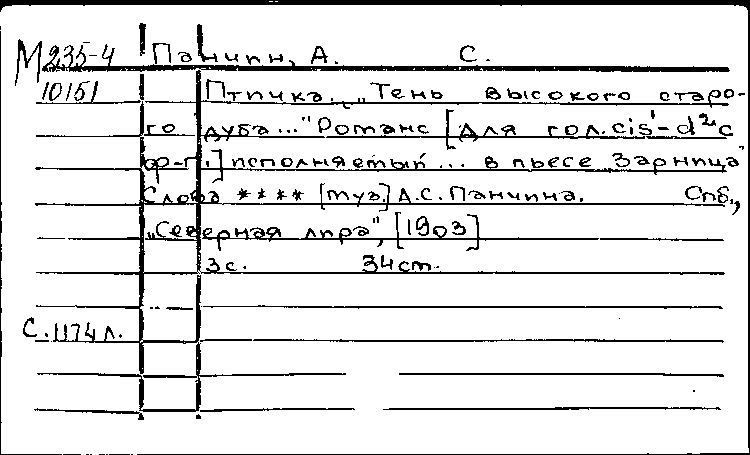 М235-4 Панчин, А. С.
10151 Птичка. „Тень высокого старо-
го дуба..." Романс [для гол. cis¹-d² с
ф-п.] исполняемый ... в пьесе Зарница"
Слова **** [муз.] А.С. Панчина. Спб.,
„Северная лира", [1903]
3с. 34 см.
С.1174 л.